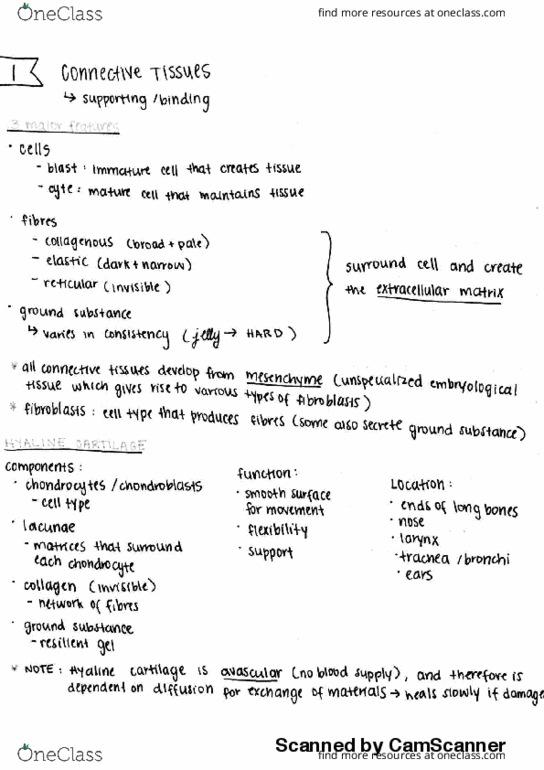 OneClass
find more resources at oneclass.com
1
CONNECTIVE TISSUES
↳ supporting/binding
3 major features
• cells
- blast : immature cell that creates tissue
- cyte : mature cell that maintains tissue
• fibres
- collagenous (broad + pale)
- elastic (dark + narrow)
- reticular (invisible)
surround cell and create
the extracellular matrix
• ground substance
↳ varies in consistency (jelly → HARD)
* all connective tissues develop from mesenchyme (unspecialized embryological
tissue which gives rise to various types of fibroblasts)
* fibroblasts : cell type that produces fibres (some also secrete ground substance)
HYALINE CARTILAGE
components :
• chondrocytes / chondroblasts
- cell type
• lacunae
- matrices that surround
each chondrocyte
• collagen (invisible)
- network of fibres
• ground substance
- resilient gel
function :
• smooth surface
for movement
• flexibility
• support
Location :
• ends of long bones
• nose
• larynx
• trachea / bronchi
• ears
* NOTE : Hyaline cartilage is avascular (no blood supply), and therefore is
dependent on diffusion for exchange of materials → heals slowly if damage
OneClass
Scanned by CamScanner
find more resources at oneclass.com